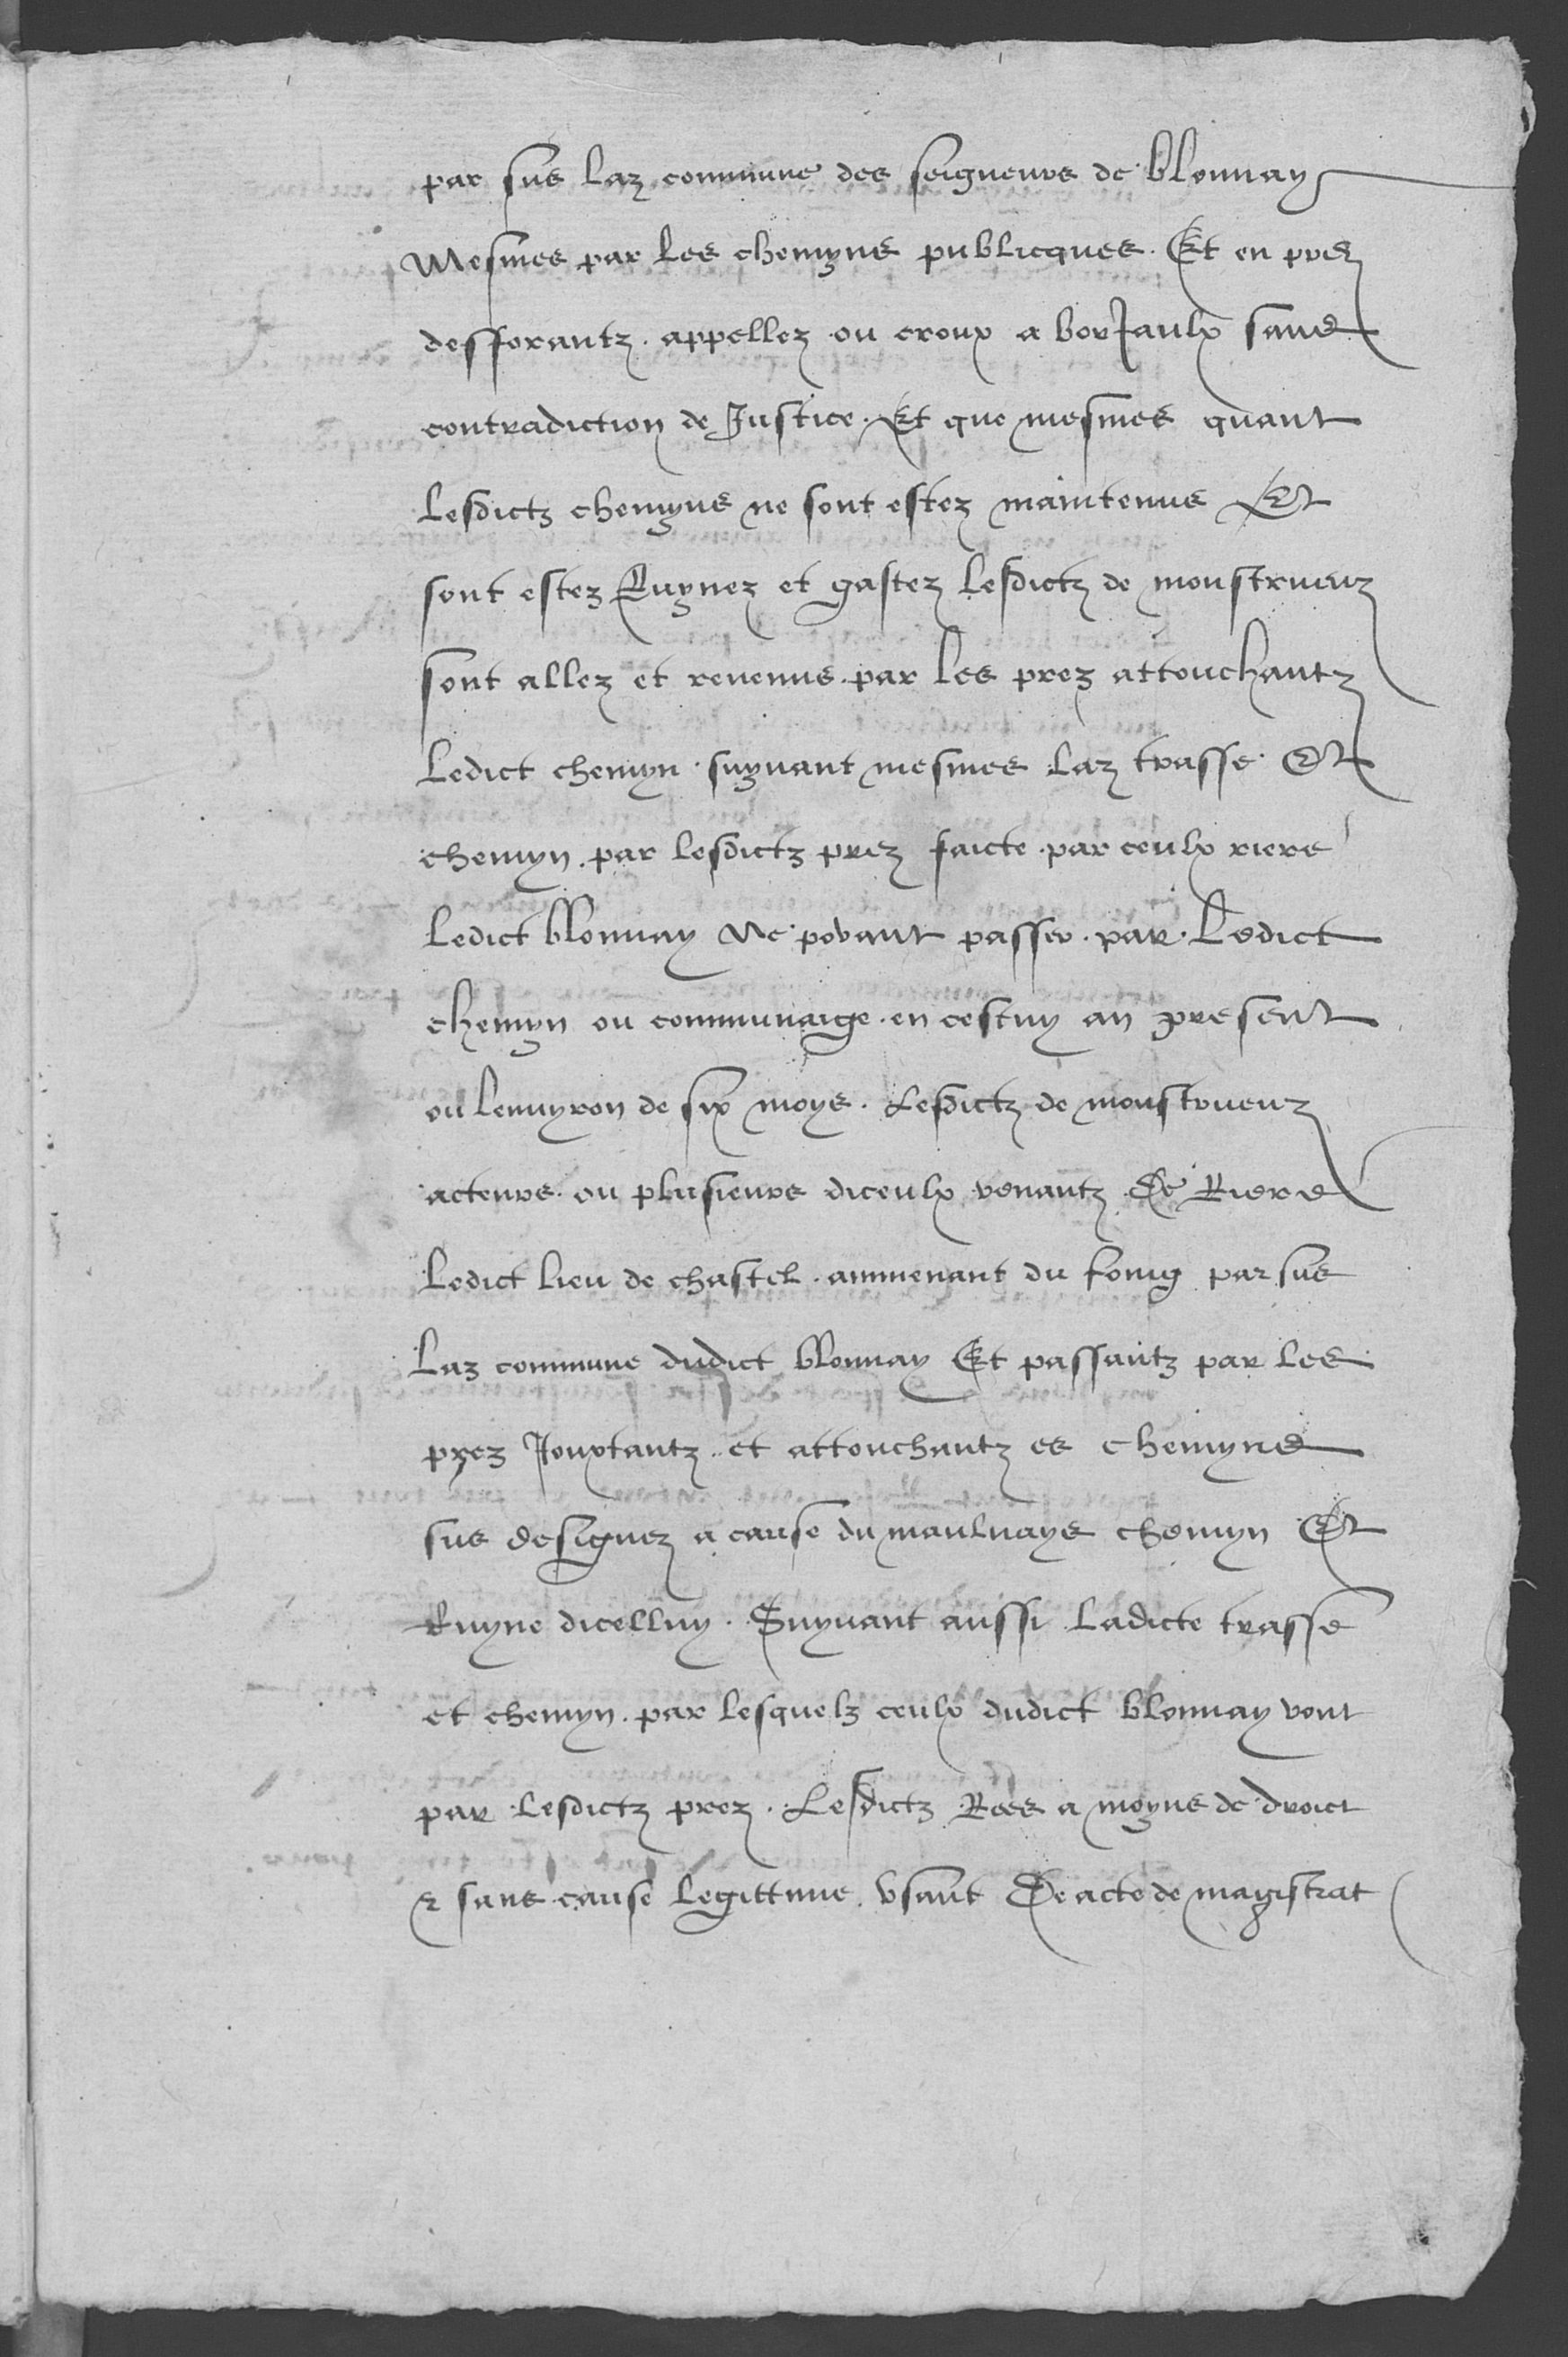 par sus laz commune des seigneurs de blonnay
Mesmes par les chemyns publicques. Et en prez
desforantz. appellez ou croux a borJaulx sans
contradiction de Justice. Et que mesmes quant
lesdictz chemyns ne sont estez maintenus Et
sont estez Ruynez et gastez lesdictz de monstrueuz
sont allez et reuenus. par les prez attouchantz
ledict chemyn. suyuant mesmes laz trasse. Et
chemyn. par lesdictz prez faicte. par ceulx riere
ledict blonnay Ne povant passer. par. Ledict
chemyn ou communaige. en cestuy an present
ou lenuyron de six moys. Lesdictz de monstrueuz
acteurs. ou plusieurs diceulx venantz De Riere
Ledict lieu de chastel. ammenant du foing par sus
Laz commune dudict blonnay Et passantz par les
prez Jouxtantz. et attouchantz es chemyns
sus designez a cause du maulvays chemyn Et
Ruyne dicelluy. Suyuant aussi Ladicte trasse
et chemyn. par lesquelz ceulx dudict blonnay vont
par. lesdictz prez. Lesdictz Rees a moyns de droict
& sans cause legittime. vsant De acte de magistrat